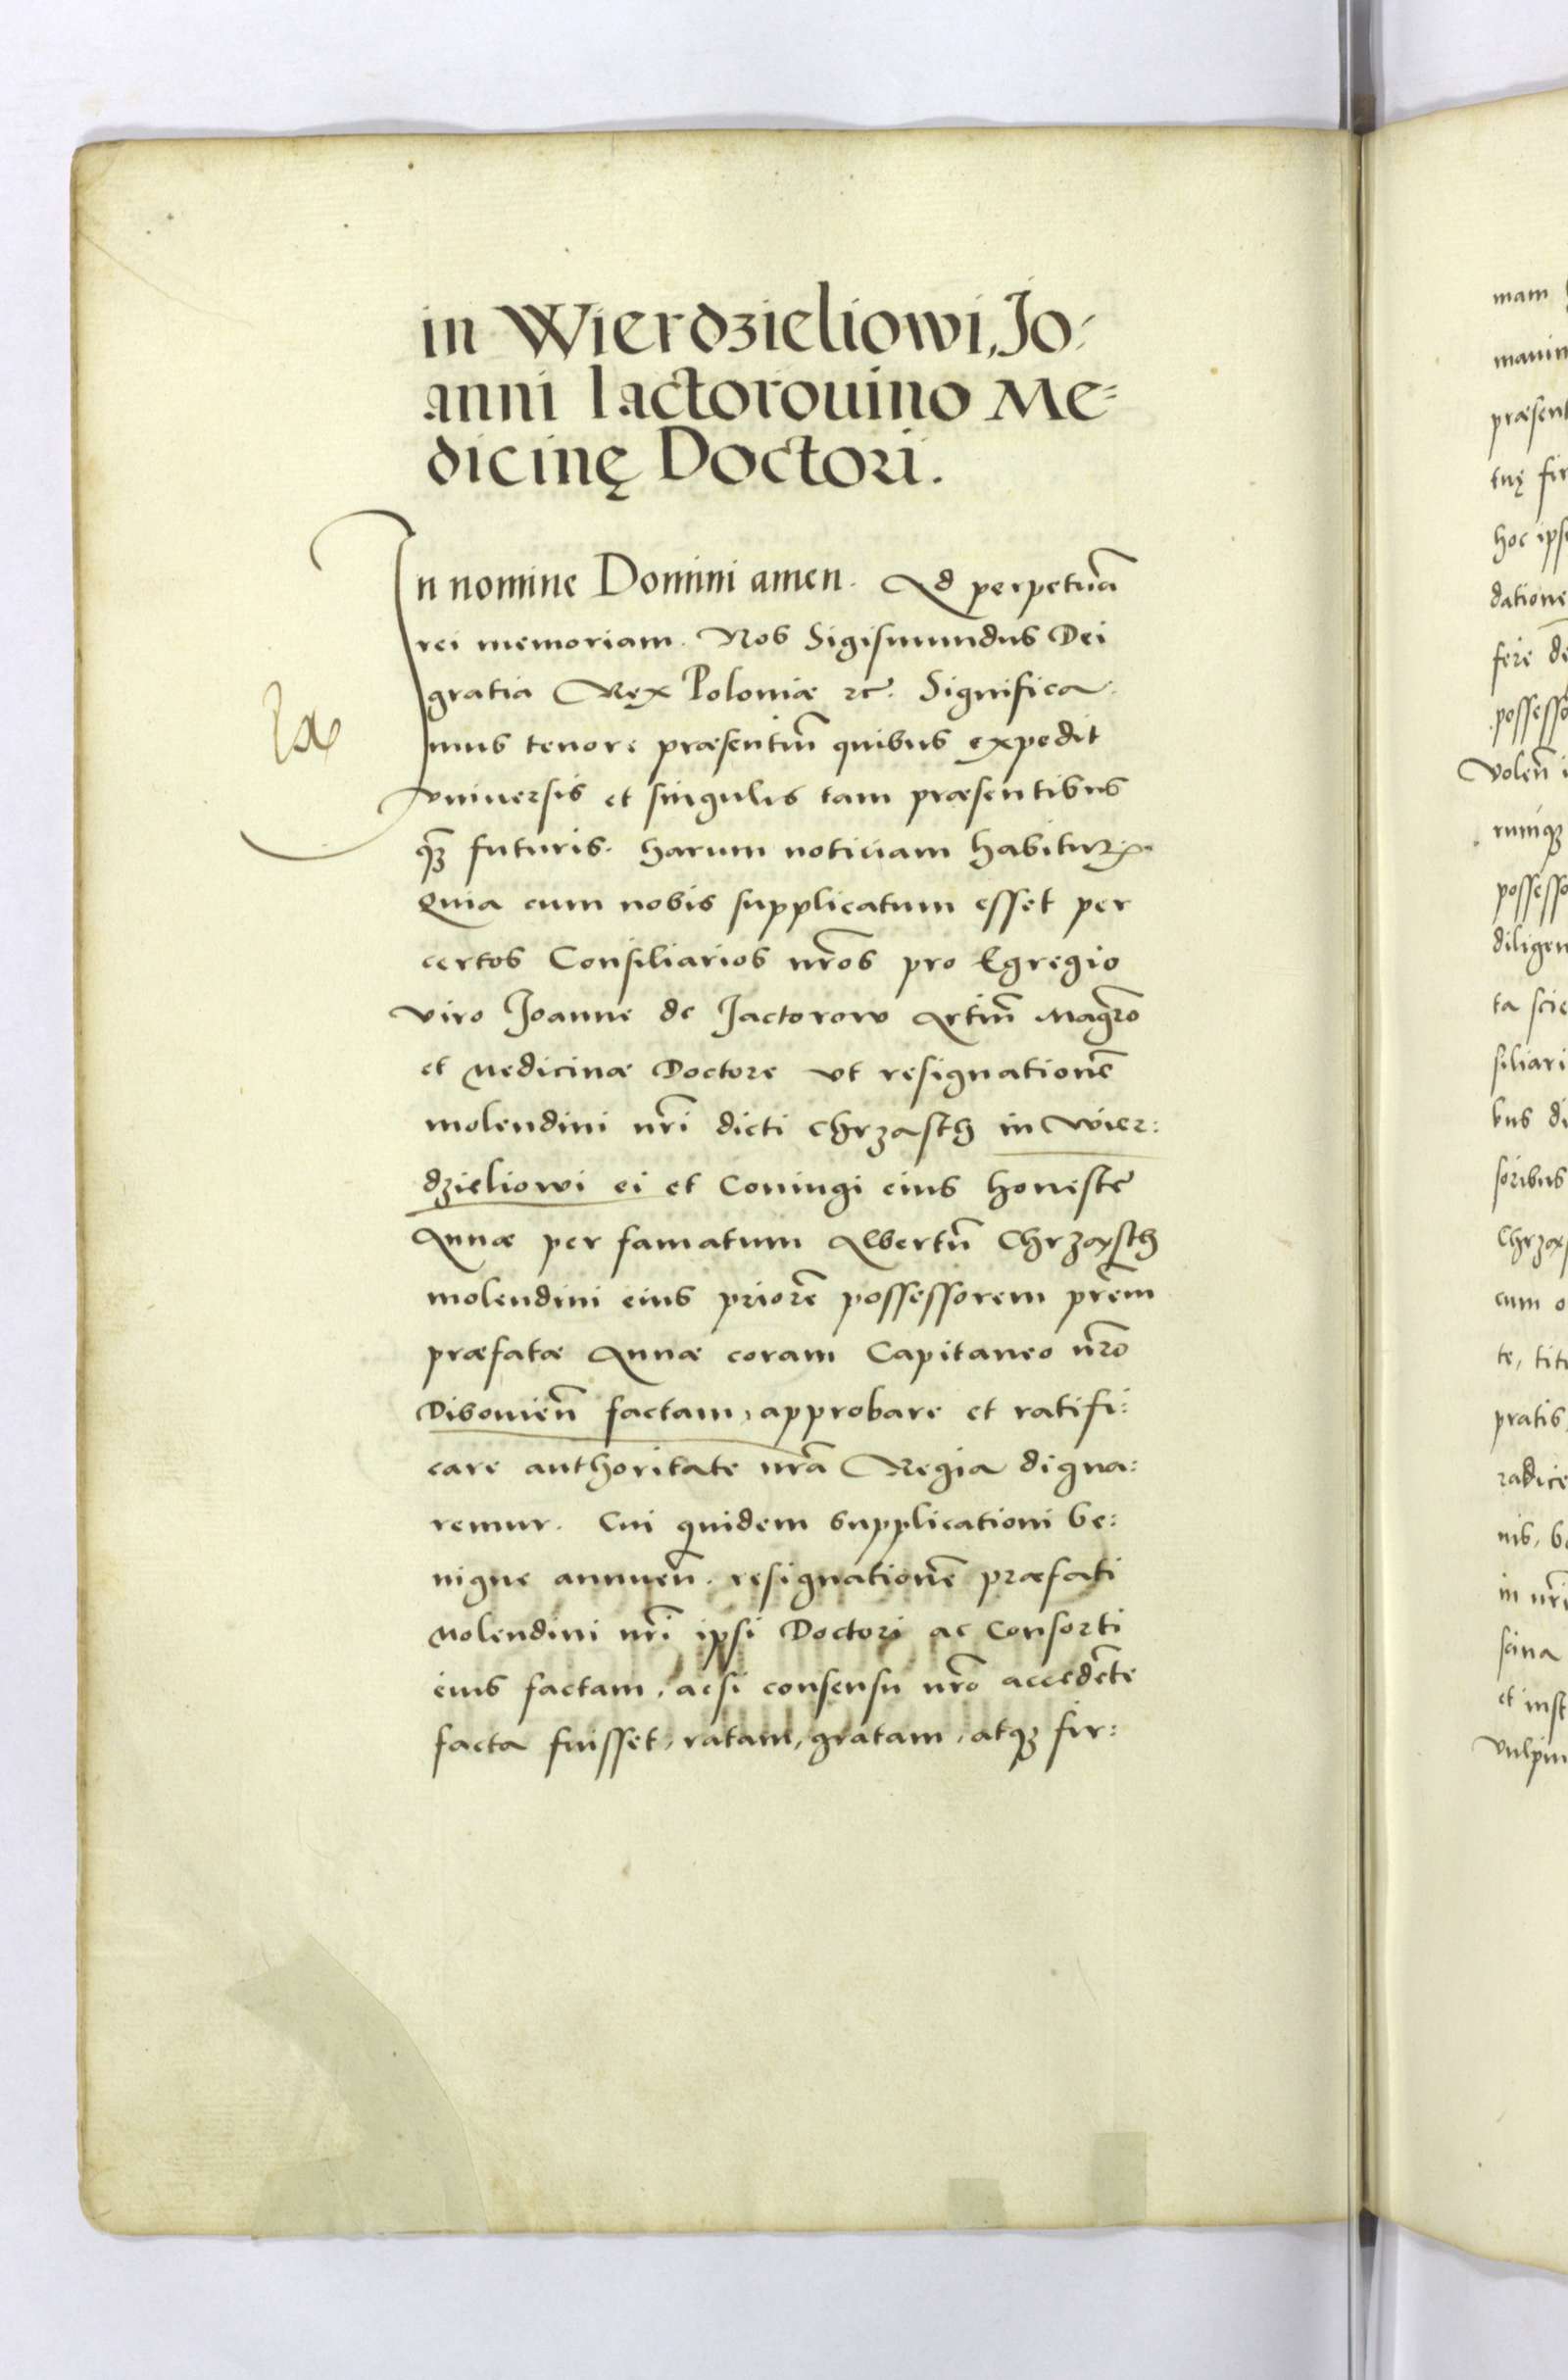 in Wierdzieliowi, Jo⸗
anni Iactorouino Me⸗
dicinę Doctori.
In nomine Domini amen. Ad perpetuā
rei memoriam. Nos Sigismundus Dei
gratia Rex Poloniæ ⁊c̄. Significa⸗
mus tenore præsentiū quibus expedit
vniuersis et singulis tam præsentibus
qꝫ futuris. harum noticiam habituꝝ.
Quia cum nobis supplicatum esset per
certos Consiliarios nr̄os pro Egregio
viro Joanne de Jactorow Artiū Magr̄o
et Medicinæ Doctore vt resignationē
molendini nr̄i dicti Chrzasth in Wier:
dzieliowi ei et Coniugi eius honestę
Annæ per famatum Albertū Chrząsth
molendini eius priorē possessorem pr̄em
præfatæ Annæ coram Capitaneo nr̄o
Dibouień factam, approbare et ratifi:
care authoritate nr̄a Regia digna:
remur. Cui quidem supplicationi be:
nigne annueń. resignationē præfati
Molendini nr̄i ipsi Doctori ac Consorti
eius factam, acsi consensu nr̄o accedēte
facta fuisset, ratam, gratam, atqꝫ fir:
mam
præsent
tuę fir
hoc ips
datione
fere de
possesso
Voleń i
rumqꝫ
possesso
diligen
ta scie
siliari
bus di
soribus
Chrzas
cum o
te, tit
pratis
radice
nis, b
in nr̄i
scina
et inst